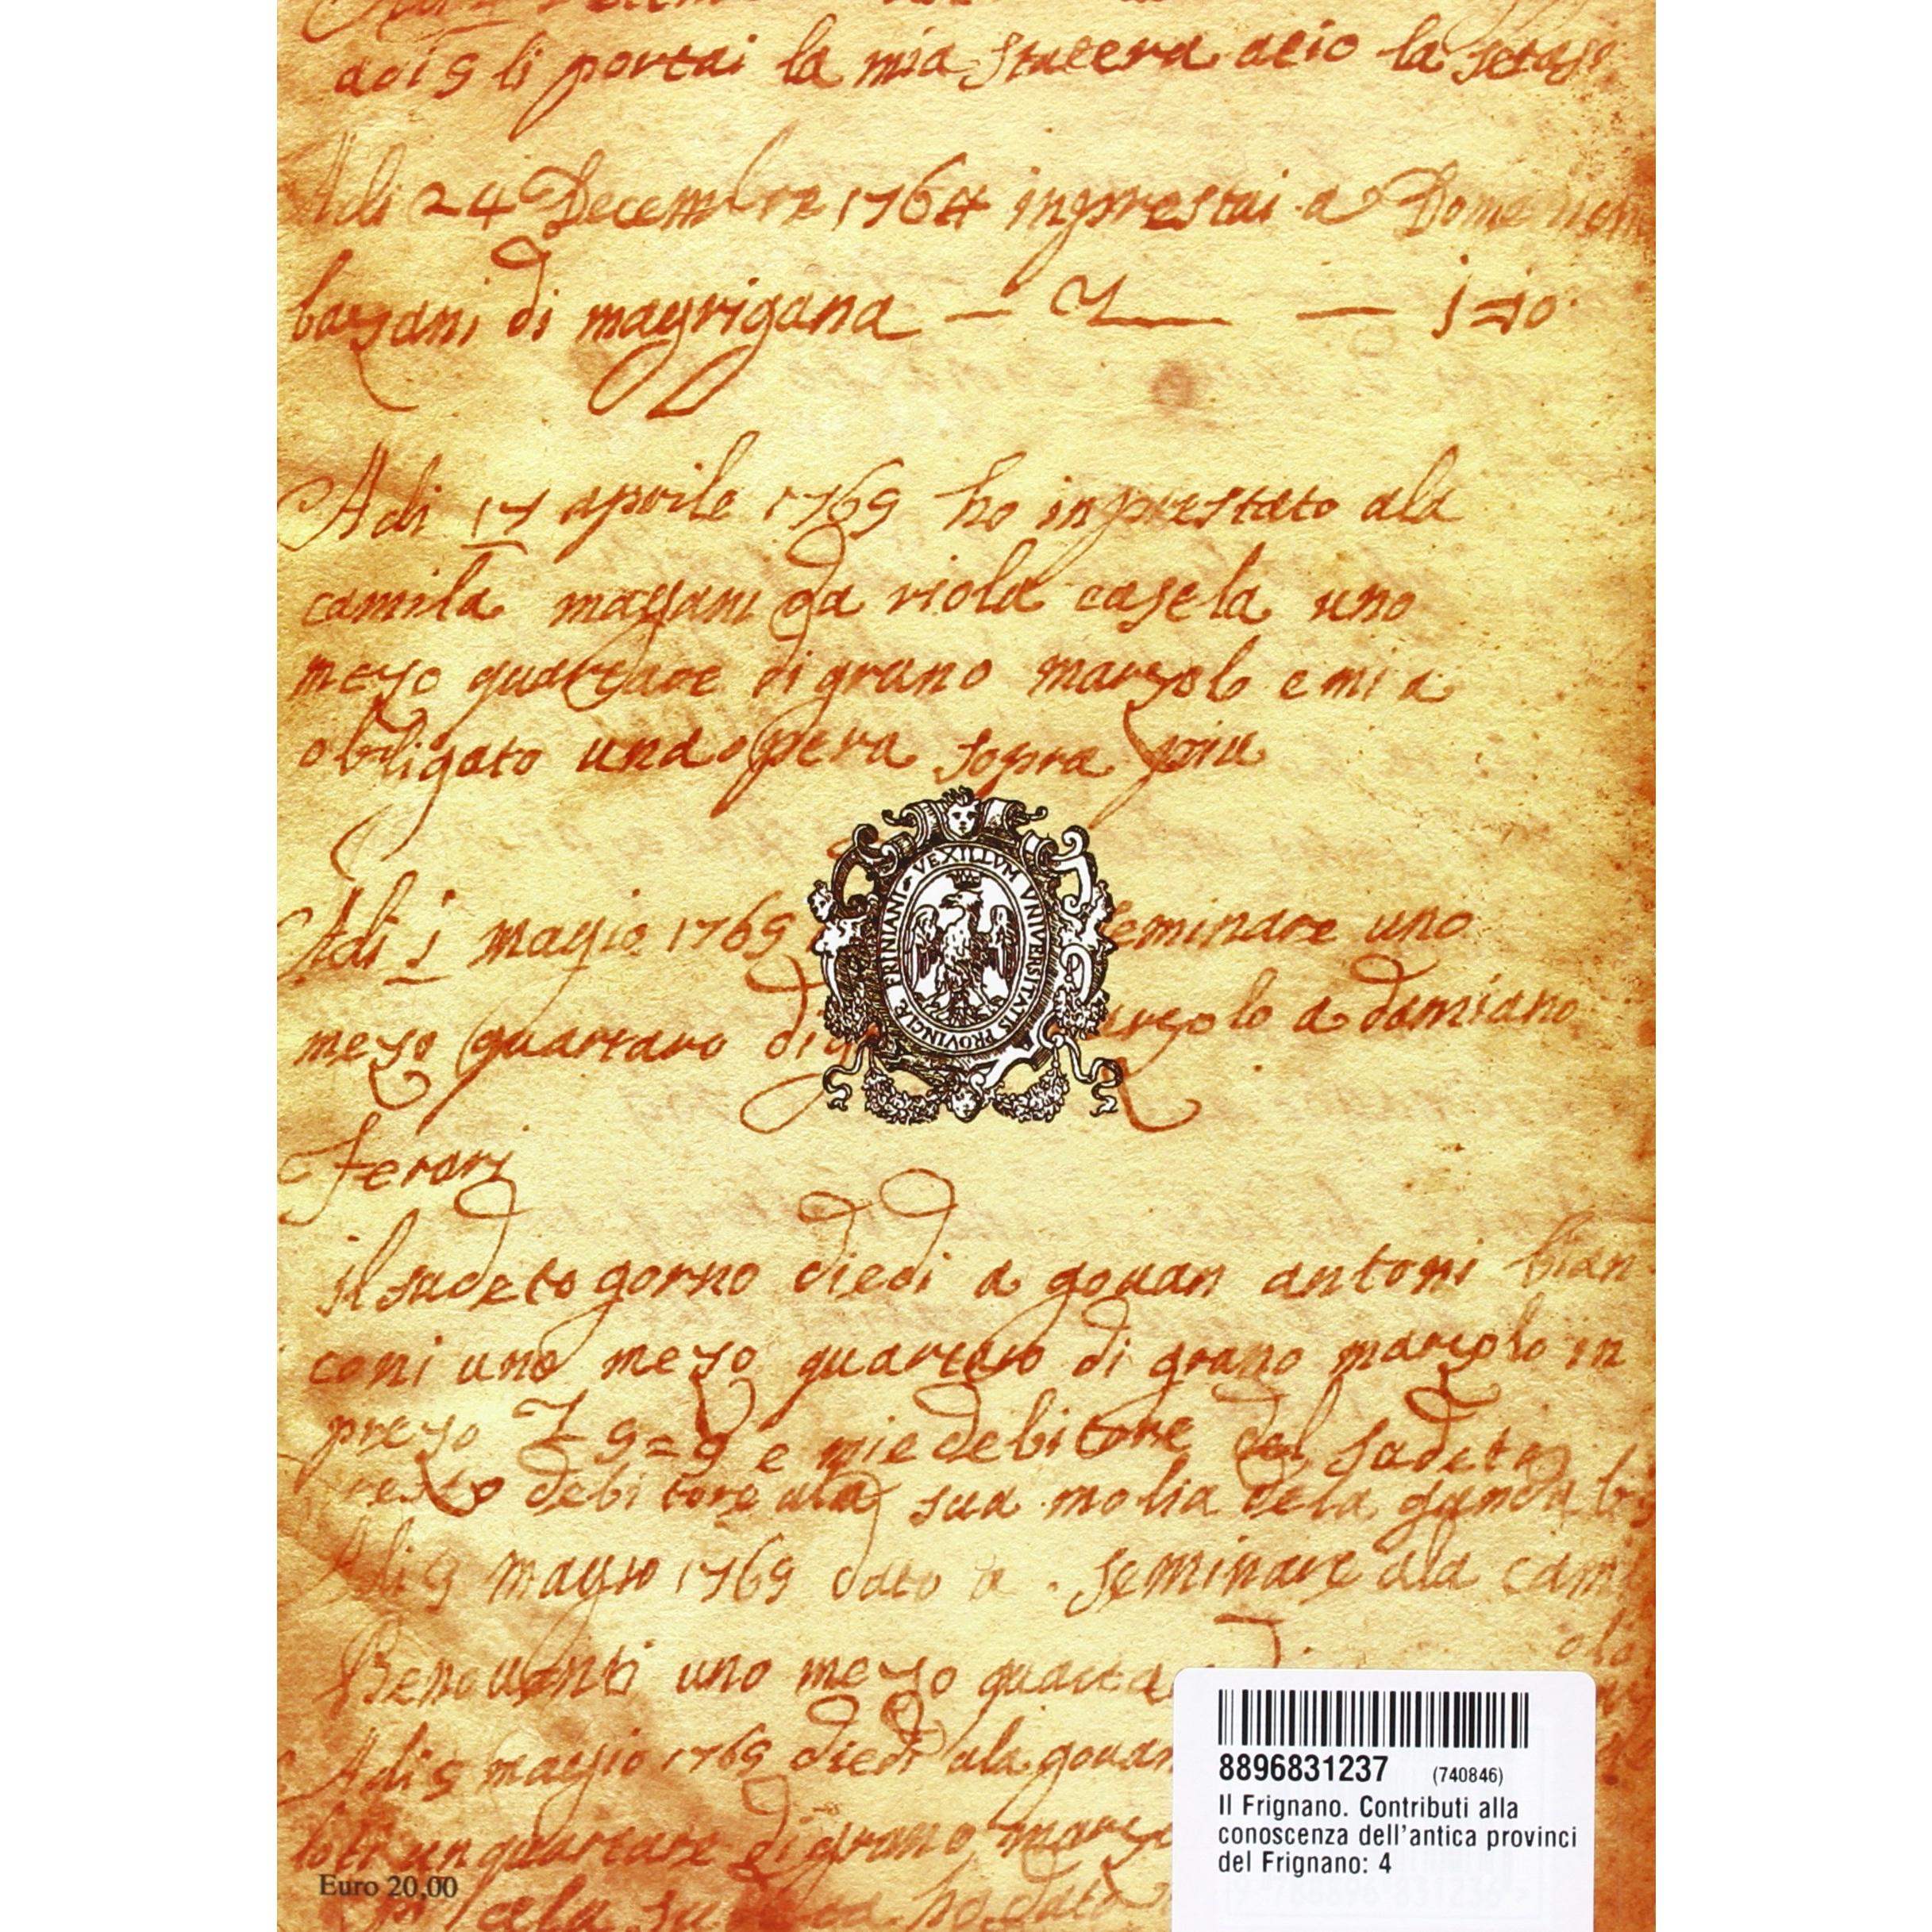 li portai la mia stacera acio la
Adi 24 Decembre 1764 inprestai a Domenicon
barzani di magrigana
Adi 17 aprile 1769 ho inprestato ala
camila mazani da viola casela uno
mezo quartare di grano marzolo e mi a
obligato una opera sopra piu
Adi j magio 1769 seminare uno
mezo quartaro di g arzolo a damiano
Ferari
il sudeto gorno diedi a gouan antoni bian
coni uno mezo quartaro di grano marzolo in
prezo 9=9 e mie debitore del sudeto
resto debitore ala sua molia dela
Adi 9 magio 1769 dato a seminare ala cami
Benouanti uno mezo quarta
Adi 9 magio 1769 diedi ala gouan
un quartare di grano marzo
ela ho dato
VEXILLVM VNIVERSITATIS PROVINCIÆ FRINIANI
Euro 20,00
8896831237 (740846)
Il Frignano. Contributi alla
conoscenza dell'antica provinci
del Frignano: 4